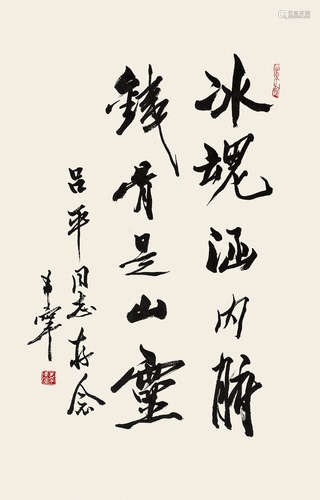 冰魂涵内腑
铁骨是山灵
吕平同志存念